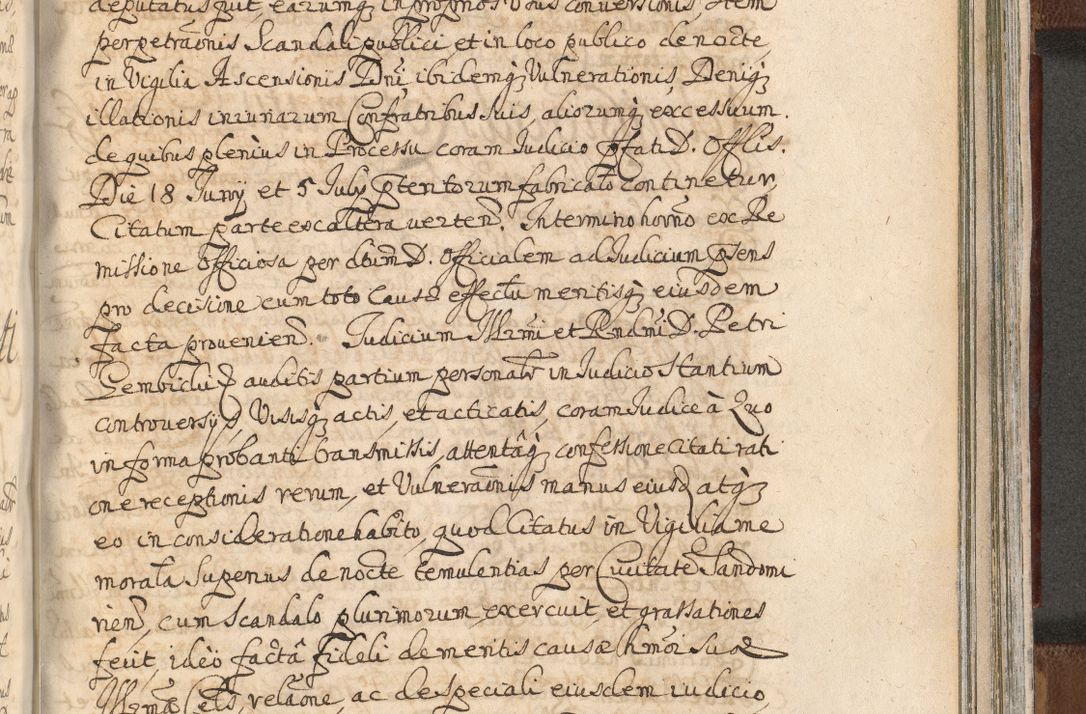 deputatus fuit, earumq in proprios usus conversionis, Item
perpetraonis Scandali publici et in loco publico de nocte,
in Vigilia Ascensionis Dni ibidemq Vulnerationis, Deniq
illationis iniuriarum Confratribus suis, aliorumq excessuum.
de quibus plenius in Processu coram Iudicio pfati D. Offlis.
Die 18 Junij et 5 July ptentorum fabricato continetur,
Citatum parte ex altera verten. In termino horno ex Re
missione Officiosa per dtum D. Officialem ad Iudicium psens
pro decisione cum toto causæ effectu meritisq eiusdem
facta provenien. Iudicium Illrmi et Rndmi D. Petri
Gembicki auditis partium personalr in Iudicio stantium
controversijs, Visisq actis, et acticatis, coram Iudice à Quo
in forma probanti transmissis, attentâq confessione Citati rati
one receptionis rerum, et Vulneraonis manus eiusd atq
eo in consideratione habito, quod Citatus in Vigilia me
morata Superius de nocte temulentias per Civitate Sandomi
rien, cum scandalo plurimorum, exercuit, et grassationes
fecit, ideo factâ fideli de meritis causæ hmoi suæ
Illrmæ Cels, relaone, ac de speciali eiusdem iudicio,